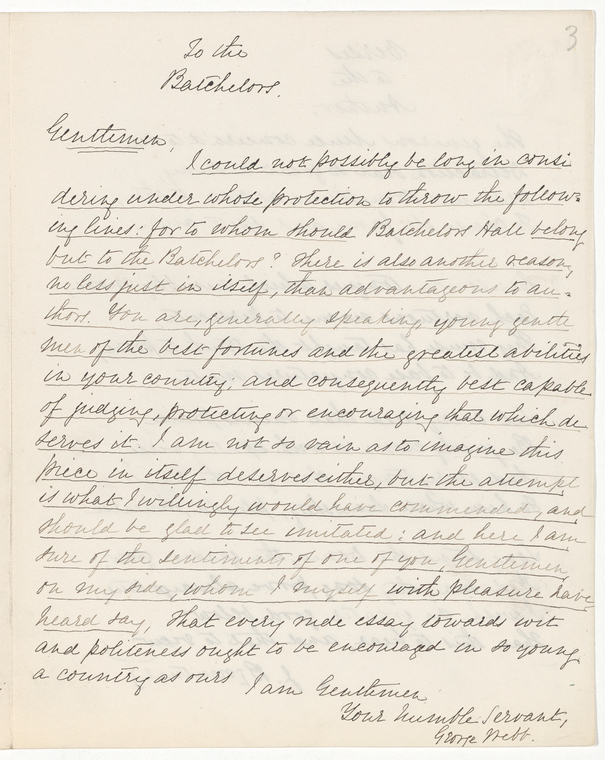 3
To the
Batchelors.
Gentlemen,
I could not possibly be long in consi
dering under whose protection to throw the follow-
ing lines: for to whom should Batchelors Hall belong
but to the Batchelors? There is also another reason,
no less just in itself, than advantageous to au-
thors. You are, generally speaking, young gentle
men of the best fortunes and the greatest abilities
in your country; and consequently best capable
of judging, protecting or encouraging that which de
serves it. I am not so vain as to imagine this
piece in itself deserves either, but the attempt
is what I willingly would have commended, and
should be glad to see imitated: and here I am
sure of the sentiments of one of you, Gentlemen,
on my side, whom I myself with pleasure have
heard say, that every rude essay towards wit
and politeness ought to be encouraged in so young
a country as ours I am Gentlemen
Your humble Servant,
George Webb.